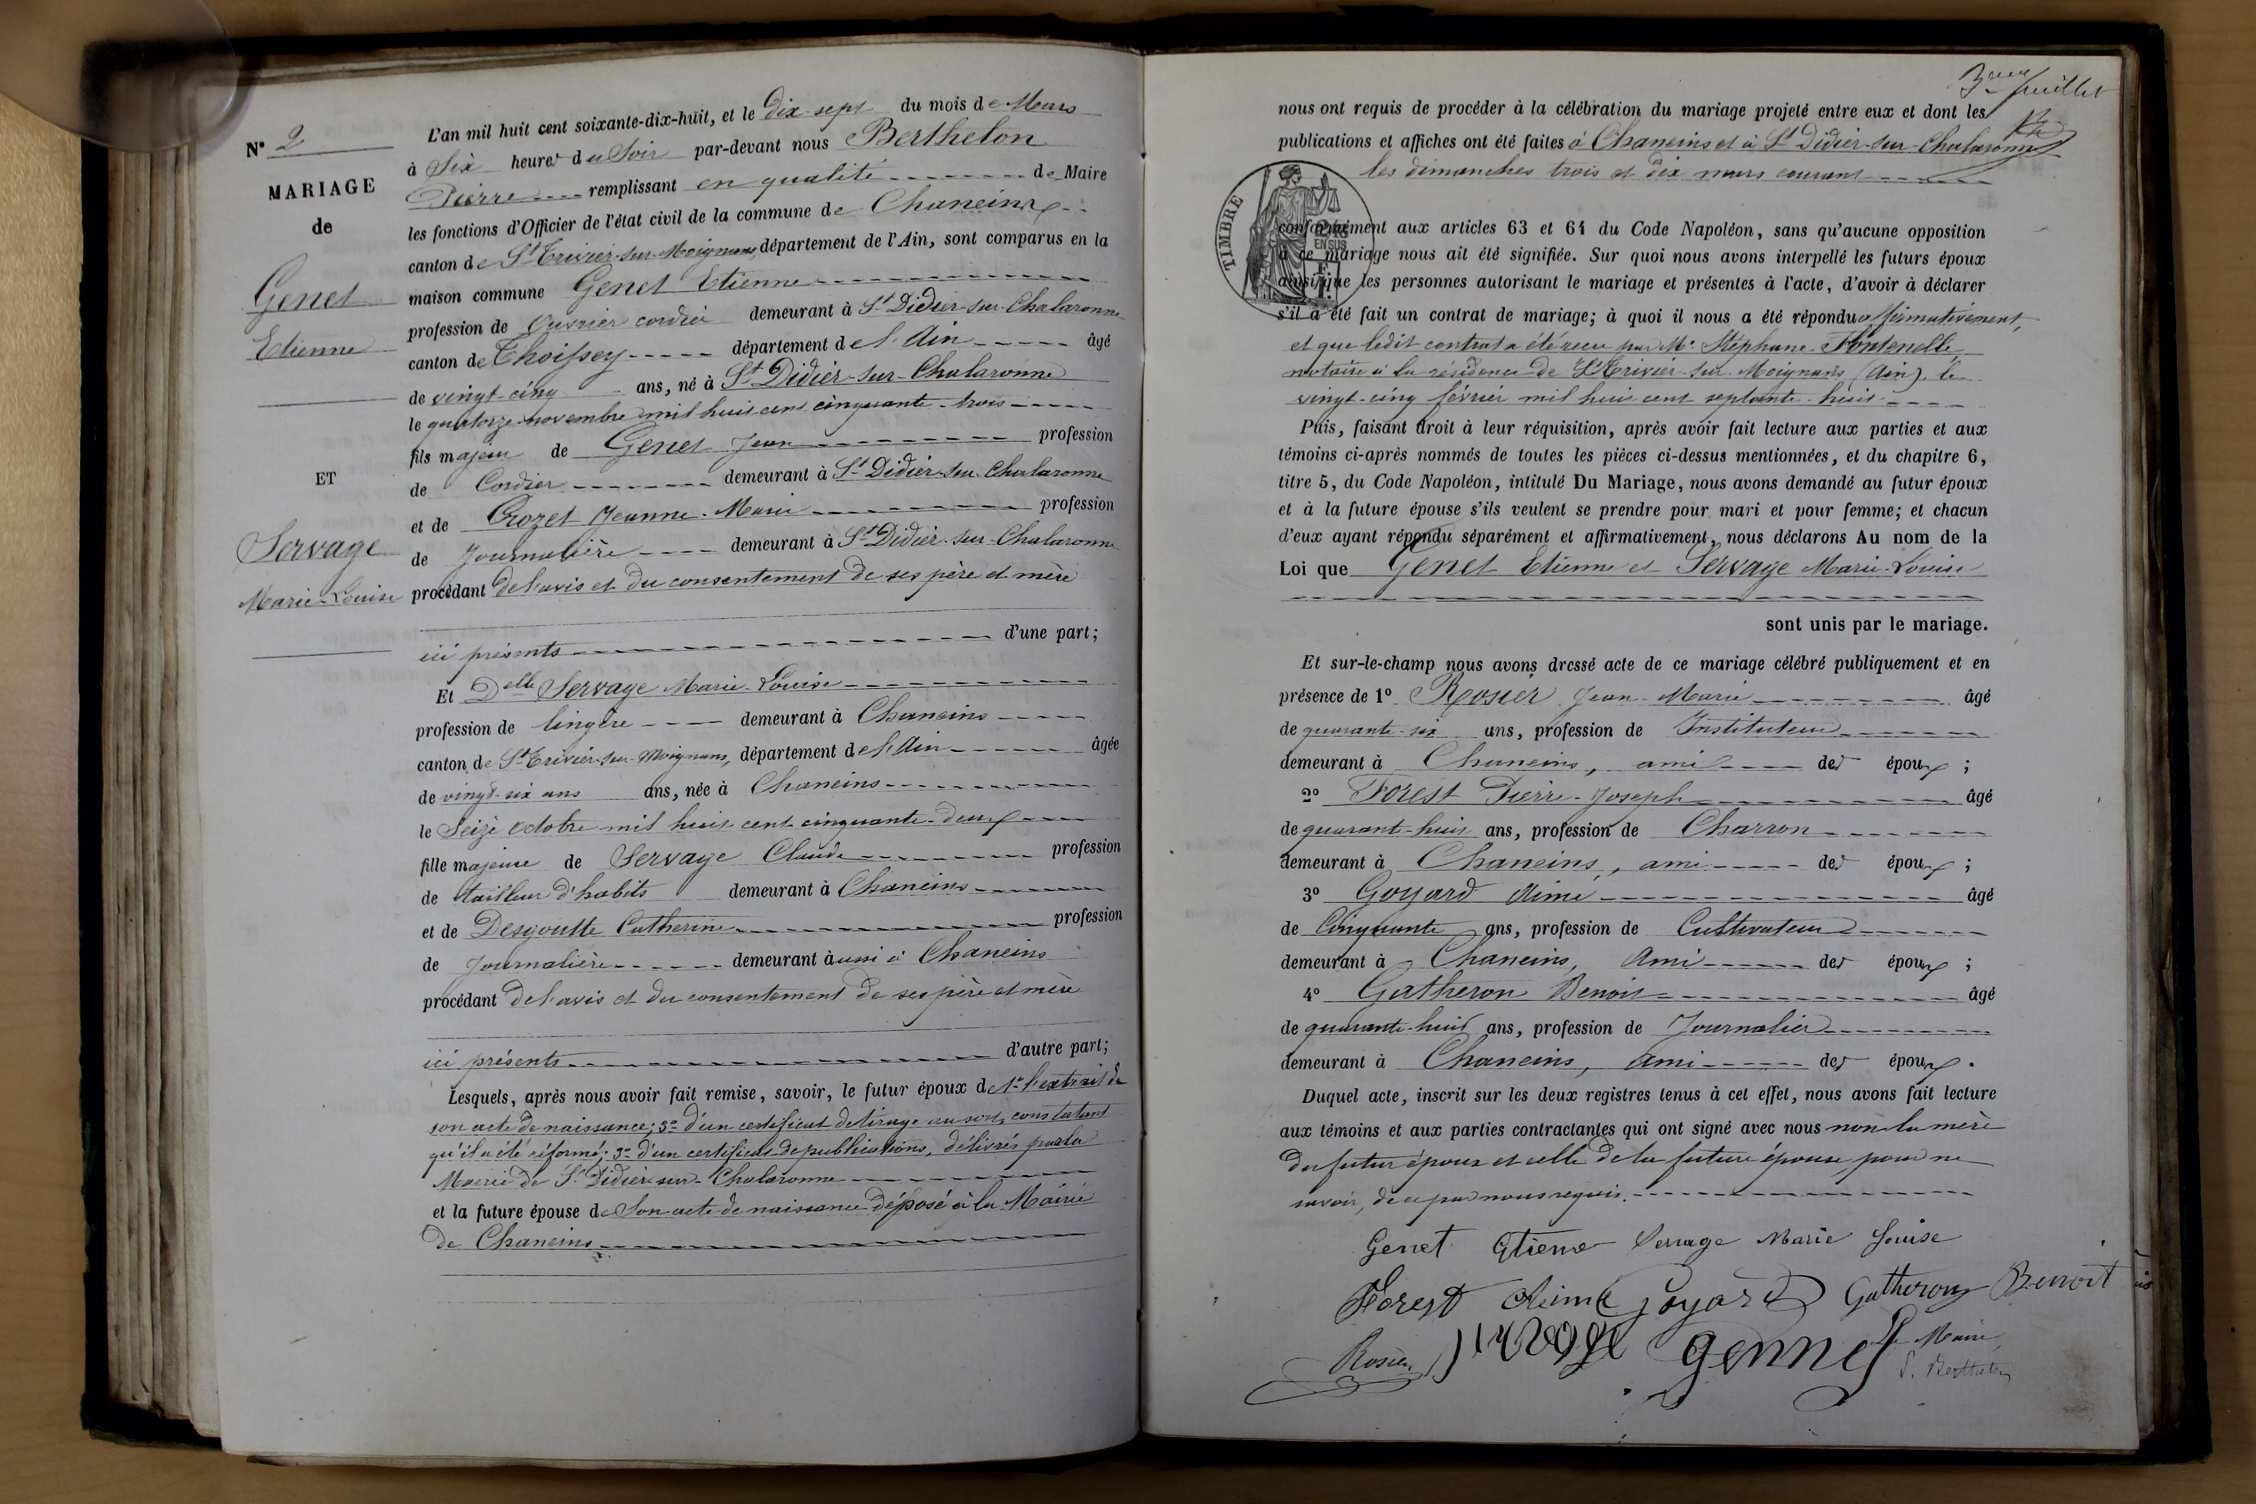 N° 2
MARIAGE
de
Genet
Etienne
ET
Servage
Marie-Louise
L'an mil huit cent soixante-dix-huit, et le dix-sept du mois de Mars
à Six heures du Soir par-devant nous Berthelon
Pierre remplissant en qualité de Maire
les fonctions d'Officier de l'état civil de la commune de Chaneins
canton de St Trivier-sur-Moignans, département de l'Ain, sont comparus en la
maison commune Genet Etienne
profession de Ouvrier cordier demeurant à St Didier-sur-Chalaronne
canton de Thoissey département de l'Ain âgé
de vingt-cinq ans, né à St Didier-sur-Chalaronne
le quatorze novembre mil huit cent cinquante-trois
fils majeur de Genet Jean profession
de Cordier demeurant à St Didier-sur-Chalaronne
et de Crozet Jeanne-Marie profession
de Journalière demeurant à St Didier-sur-Chalaronne
procédant de l'avis et du consentement de ses père et mère
ici présents d'une part;
Et Delle Servage Marie-Louise
profession de lingère demeurant à Chaneins
canton de St Trivier-sur-Moignans, département de l'Ain âgée
de vingt-six ans ans, née à Chaneins
le Seize octobre mil huit cent cinquante-deux
fille majeure de Servage Claude profession
de tailleur d'habits demeurant à Chaneins
et de Desgoutte Catherine profession
de Journalière demeurant à aussi à Chaneins
procédant de l'avis et du consentement de ses père et mère
ici présents d'autre part;
Lesquels, après nous avoir fait remise, savoir, le futur époux de 1° l'extrait de
son acte de naissance; 2° d'un certificat de tirage au sort, constatant
qu'il a été réformé; 3° d'un certificat de publications, délivrés par la
Mairie de St Didier-sur-Chalaronne
et la future épouse de Son acte de naissance déposé à la Mairie
de Chaneins
3eme feuillet
nous ont requis de procéder à la célébration du mariage projeté entre eux et dont les
publications et affiches ont été faites à Chaneins et à St Didier-sur-Chalaronne
les dimanches trois et dix mars courant
TIMBRE
2/10 EN SUS
conformément aux articles 63 et 64 du Code Napoléon, sans qu'aucune opposition
à ce mariage nous ait été signifiée. Sur quoi nous avons interpellé les futurs époux
ainsi que les personnes autorisant le mariage et présentes à l'acte, d'avoir à déclarer
s'il a été fait un contrat de mariage; à quoi il nous a été répondu affirmativement,
et que ledit contrat a été reçu par Me Stéphane Fontenelle,
notaire à la résidence de St Trivier-sur-Moignans (Ain), le
vingt-cinq février mil huit cent septante-huit
Puis, faisant droit à leur réquisition, après avoir fait lecture aux parties et aux
témoins ci-après nommés de toutes les pièces ci-dessus mentionnées, et du chapitre 6,
titre 5, du Code Napoléon, intitulé Du Mariage, nous avons demandé au futur époux
et à la future épouse s'ils veulent se prendre pour mari et pour femme; et chacun
d'eux ayant répondu séparément et affirmativement, nous déclarons Au nom de la
Loi que Genet Etienne et Servage Marie-Louise
sont unis par le mariage.
Et sur-le-champ nous avons dressé acte de ce mariage célébré publiquement et en
présence de 1° Rosier Jean-Marie âgé
de quarante-six ans, profession de Instituteur
demeurant à Chaneins, ami des époux;
2° Forest Pierre-Joseph âgé
de quarante-huit ans, profession de Charron
demeurant à Chaneins, ami des époux;
3° Goyard Aimé âgé
de Cinquante ans, profession de Cultivateur
demeurant à Chaneins, Ami des époux;
4° Gatheron Benoit âgé
de quarante-huit ans, profession de Journalier
demeurant à Chaneins, Ami des époux.
Duquel acte, inscrit sur les deux registres tenus à cet effet, nous avons fait lecture
aux témoins et aux parties contractantes qui ont signé avec nous non la mère
du futur époux et celle de la future épouse pour ne
savoir, de ce par nous requis.
Genet Etienne Servage Marie Louise
Forest Aimé Goyard Gatheron Benoit
Rosier Servage Gennet Le Maire,
P. Berthelon